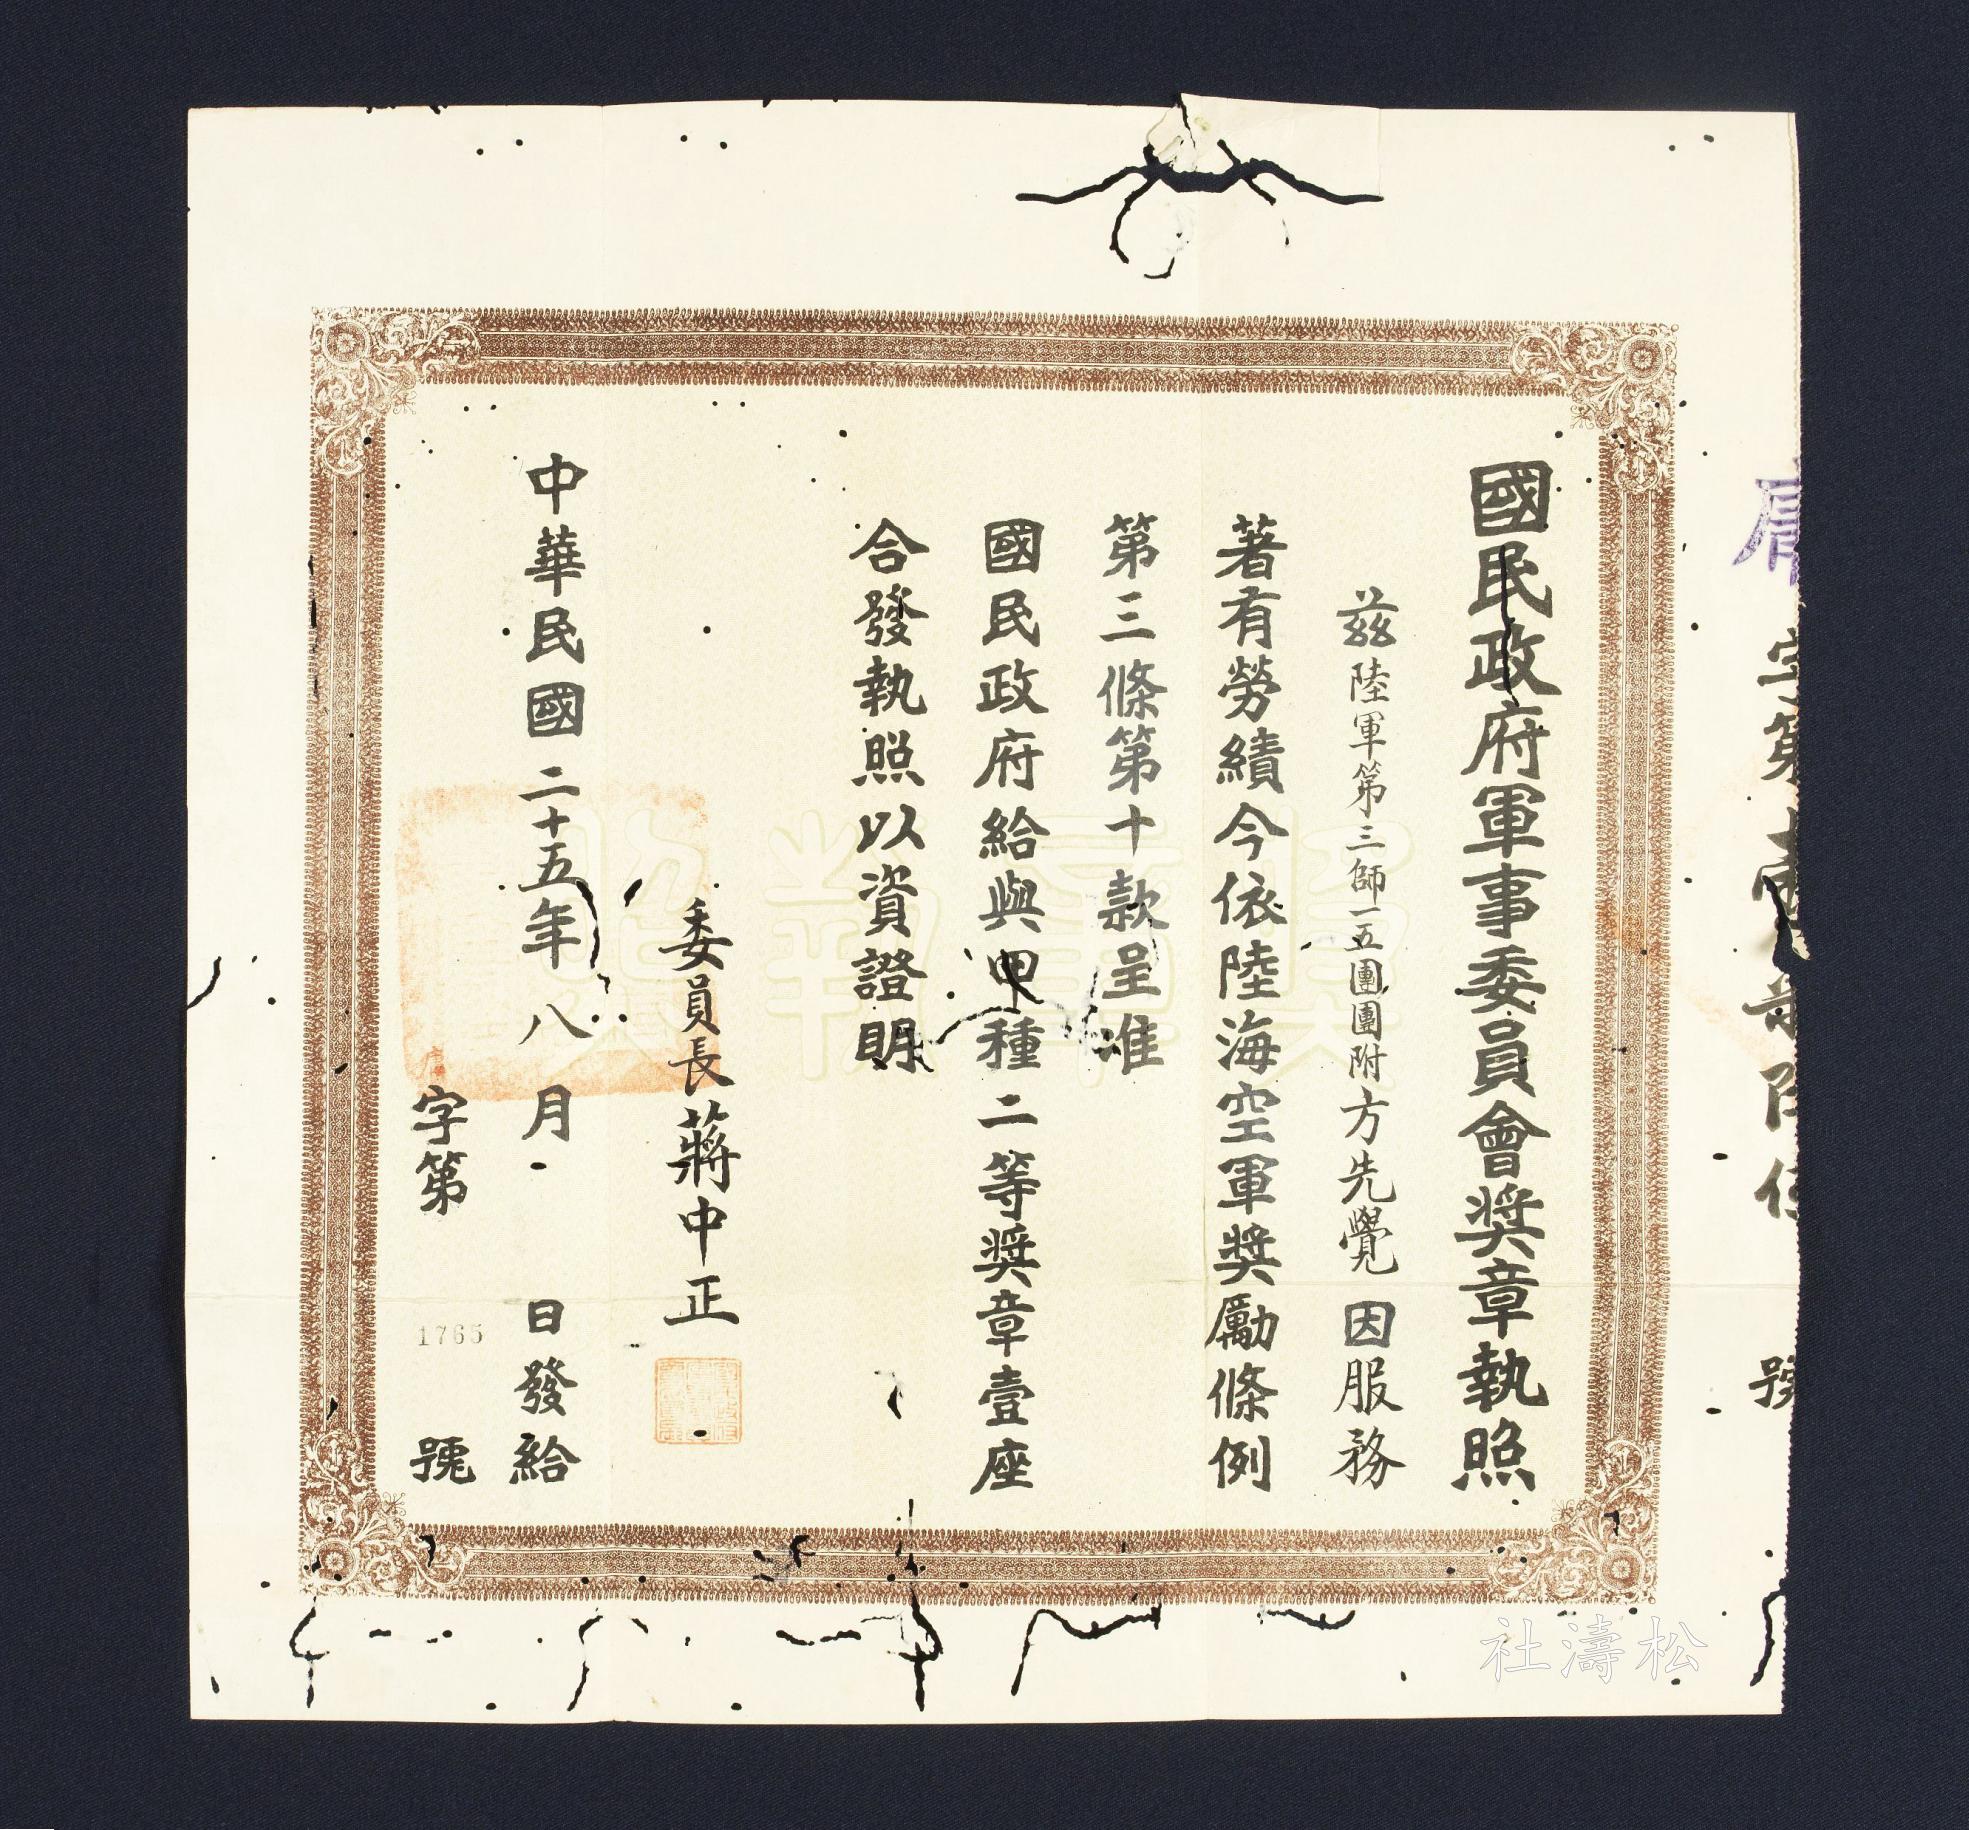 國民政府軍事委員會奬章執照
茲陸軍第三師一五團團附方先覺因服務
著有勞績今依陸海空軍奬勵條例
第三條第十款呈准
國民政府給與甲種二等奬章壹座
合發執照以資證明
委員長蔣中正
中華民國二十五年八月 日發給
字第1765號
奬章執照
松濤社